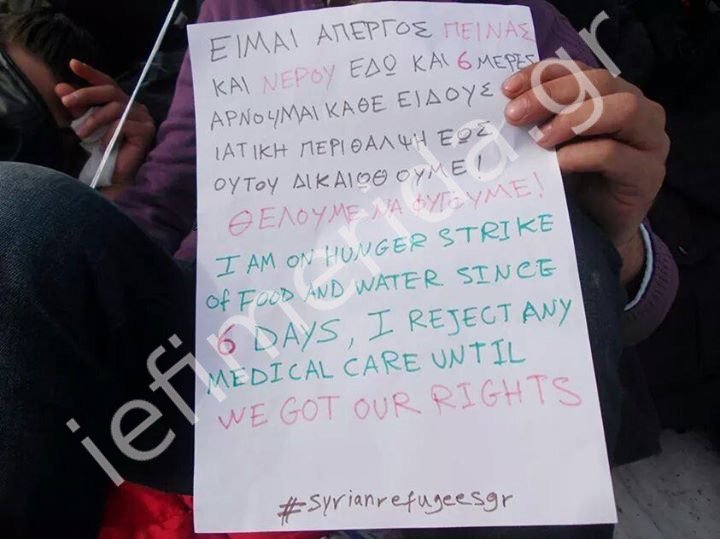 ΕΙΜΑΙ ΑΠΕΡΓΟΣ ΠΕΙΝΑΣ
ΚΑΙ ΝΕΡΟΥ ΕΔΩ ΚΑΙ 6 ΜΕΡΕΣ
ΑΡΝΟΥΜΑΙ ΚΑΘΕ ΕΙΔΟΥΣ
ΙΑΤΙΚΗ ΠΕΡΙΘΑΛΨΗ ΕΩΣ
ΟΥΤΟΥ ΔΙΚΑΙΩΘΟΥΜΕ!
ΘΕΛΟΥΜΕ ΝΑ ΦΥΓΟΥΜΕ!
I AM ON HUNGER STRIKE
OF FOOD AND WATER SINCE
6 DAYS, I REJECT ANY
MEDICAL CARE UNTIL
WE GOT OUR RIGHTS
#syrianrefugeesgr
iefimerida.gr